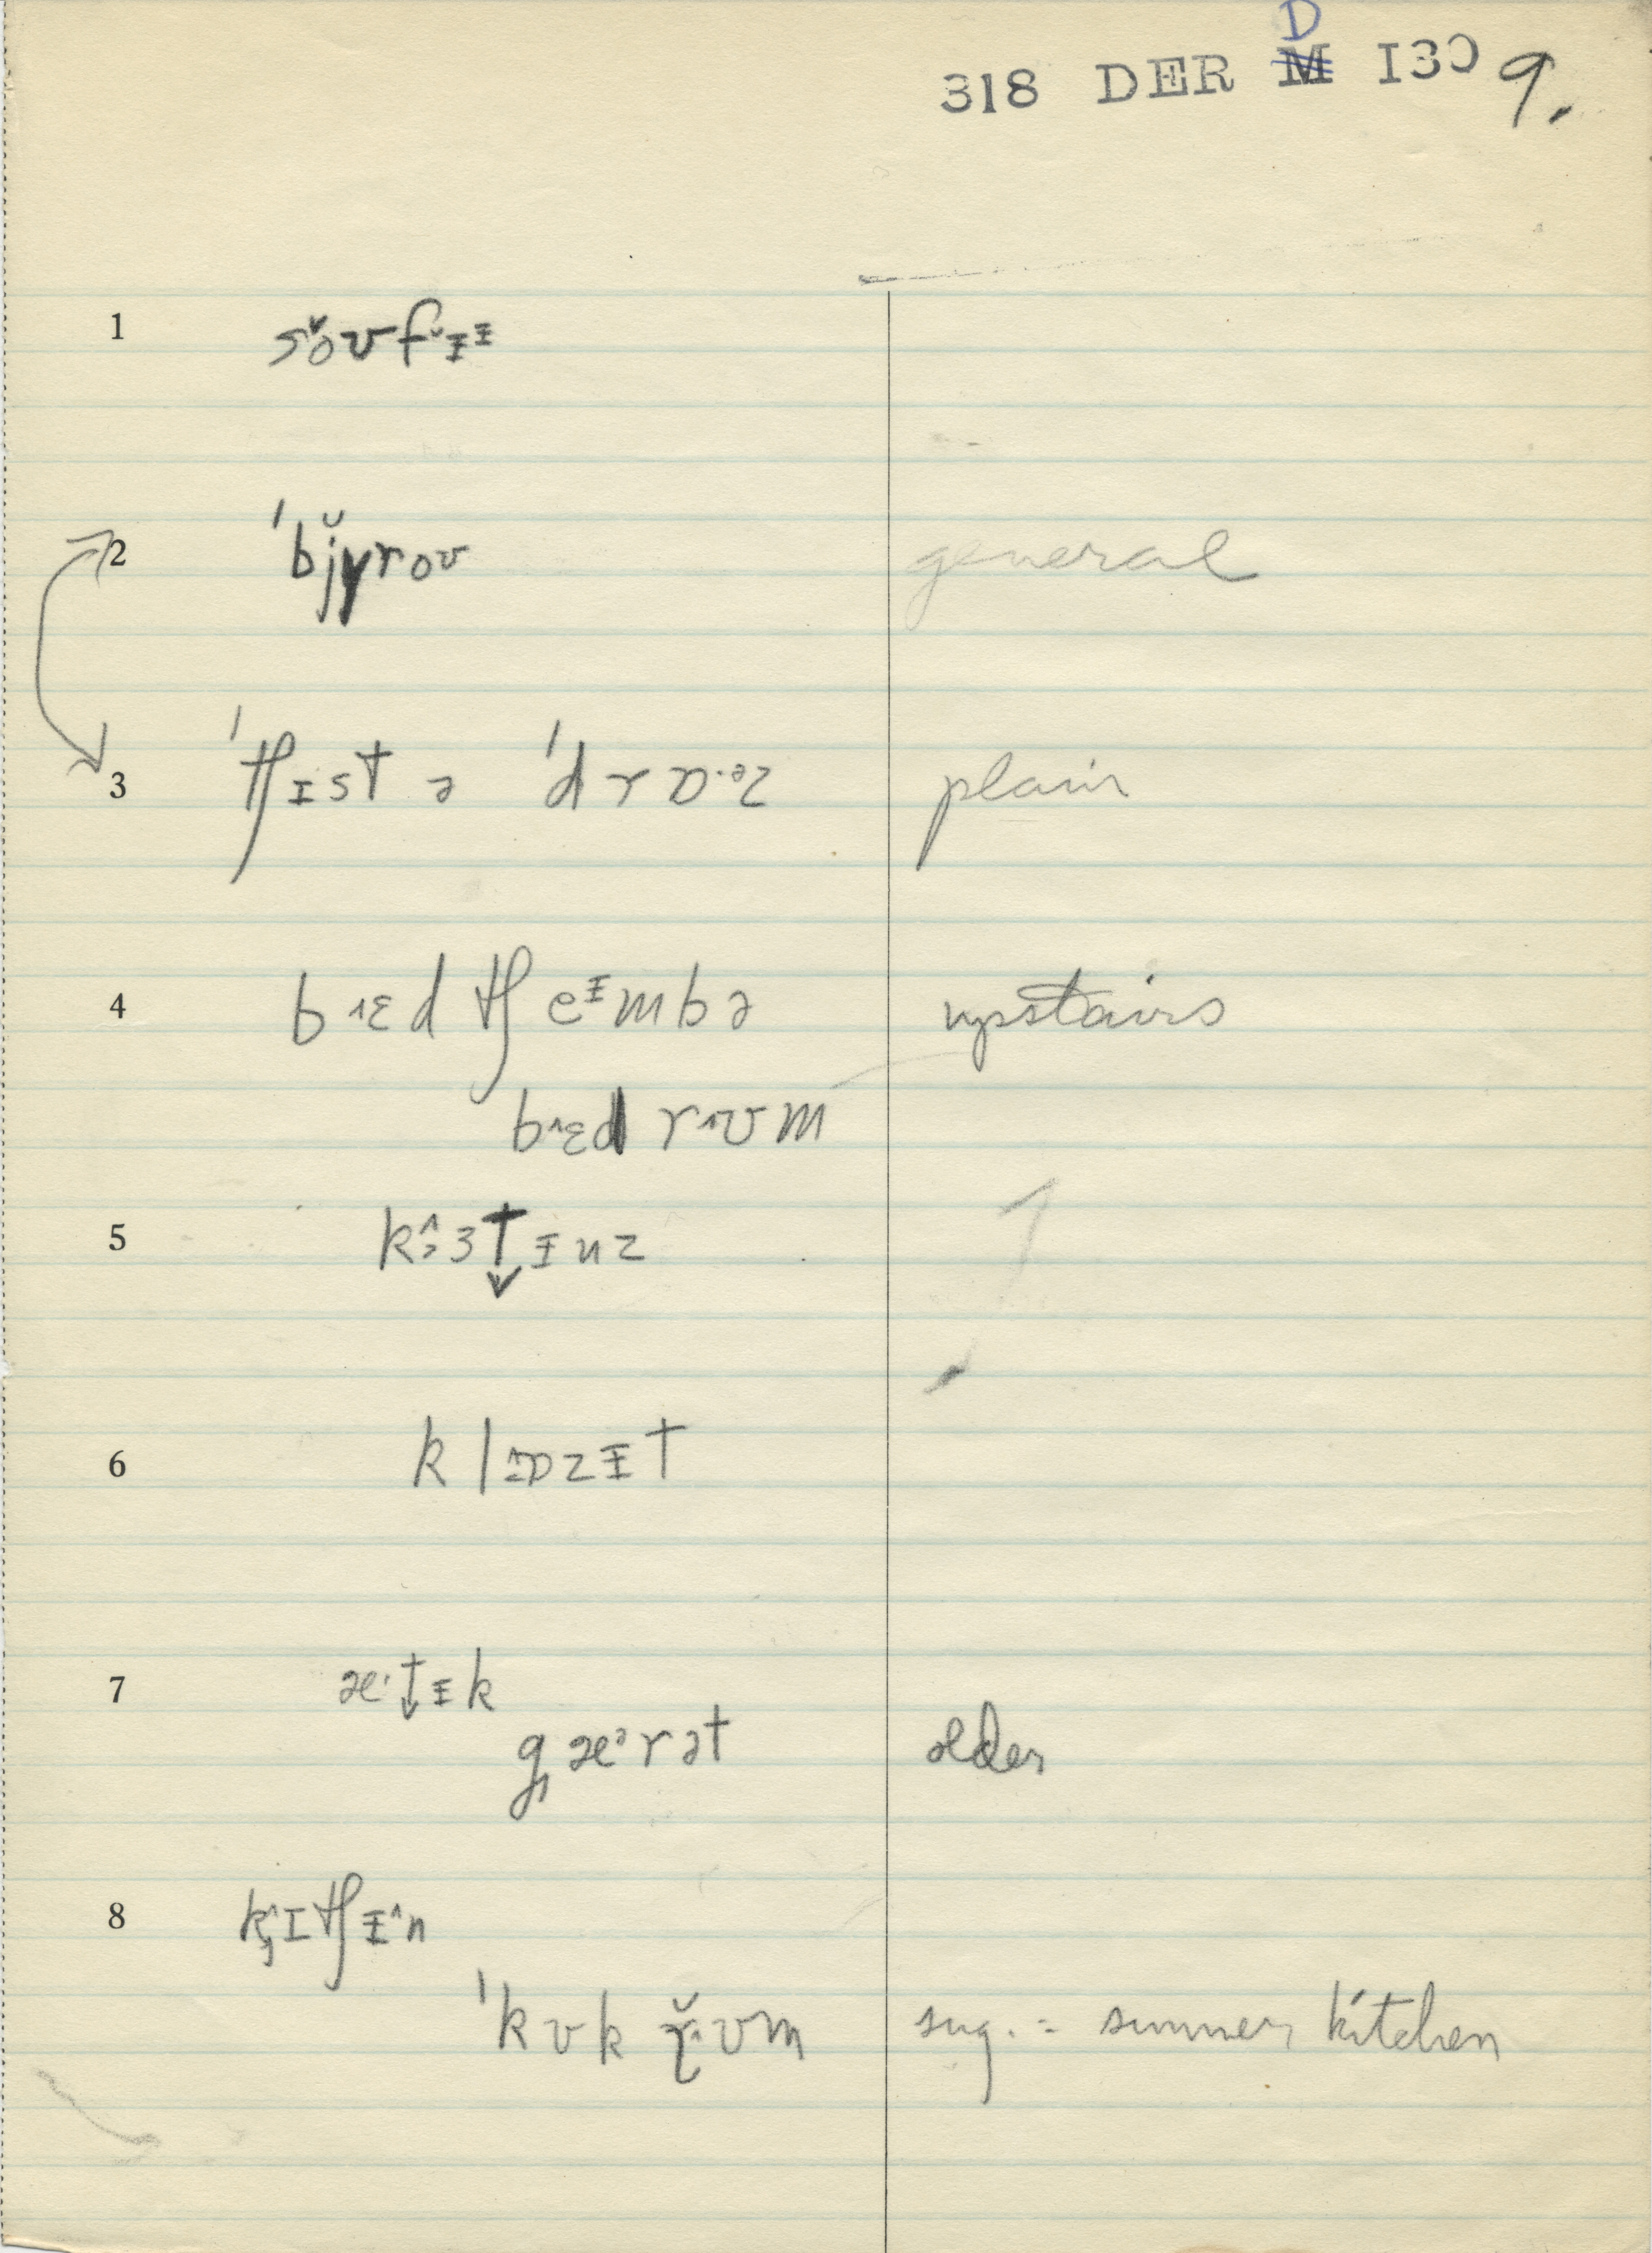 D
318 DER M I30 9.
1 so̬ʊfᵻᵻ
2 ˈbjyroʊ general
3 ˈtʃɪst ə ˈdrɒ·ᵊz plain
4 bɛd tʃeᵻmbə upstairs
bɛd rʊm
5 kɜtᵻnz
6 klɒzᵻt
7 æ·tᵻk
gæᵊrət older
8 kɪtʃᵻn
ˈkʊk rʊm sug. = summer kitchen